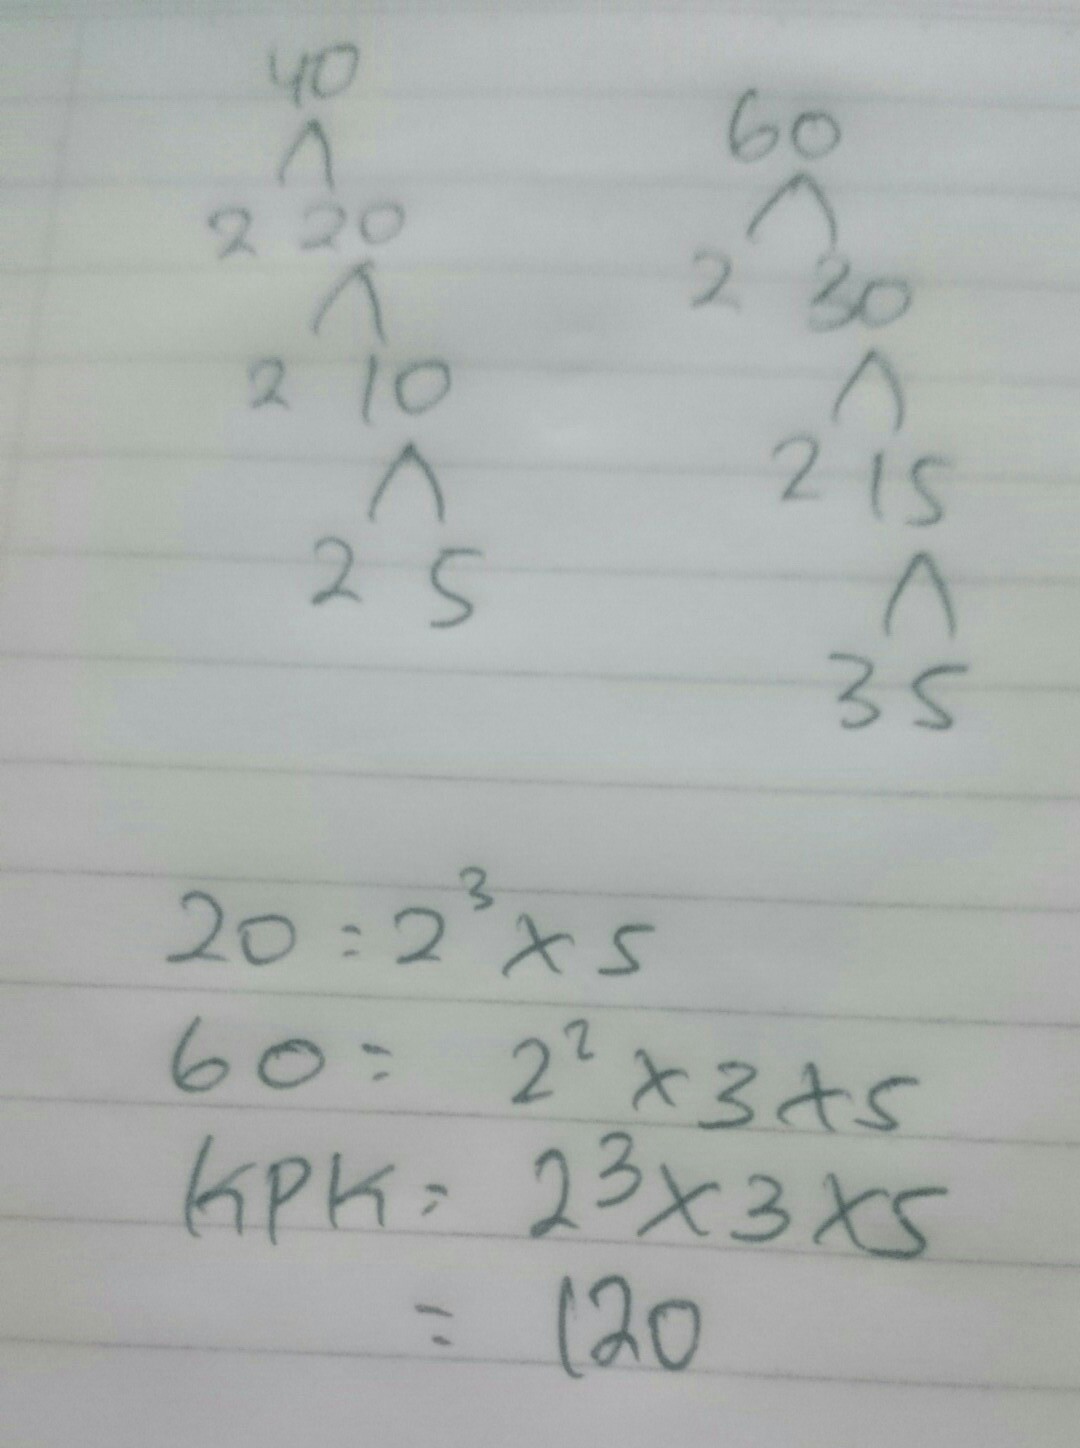 40
2 20
2 10
2 5
60
2 30
2 15
3 5
20 = 2³ x 5
60 = 2² x 3 x 5
KPK = 2³ x 3 x 5
= 120